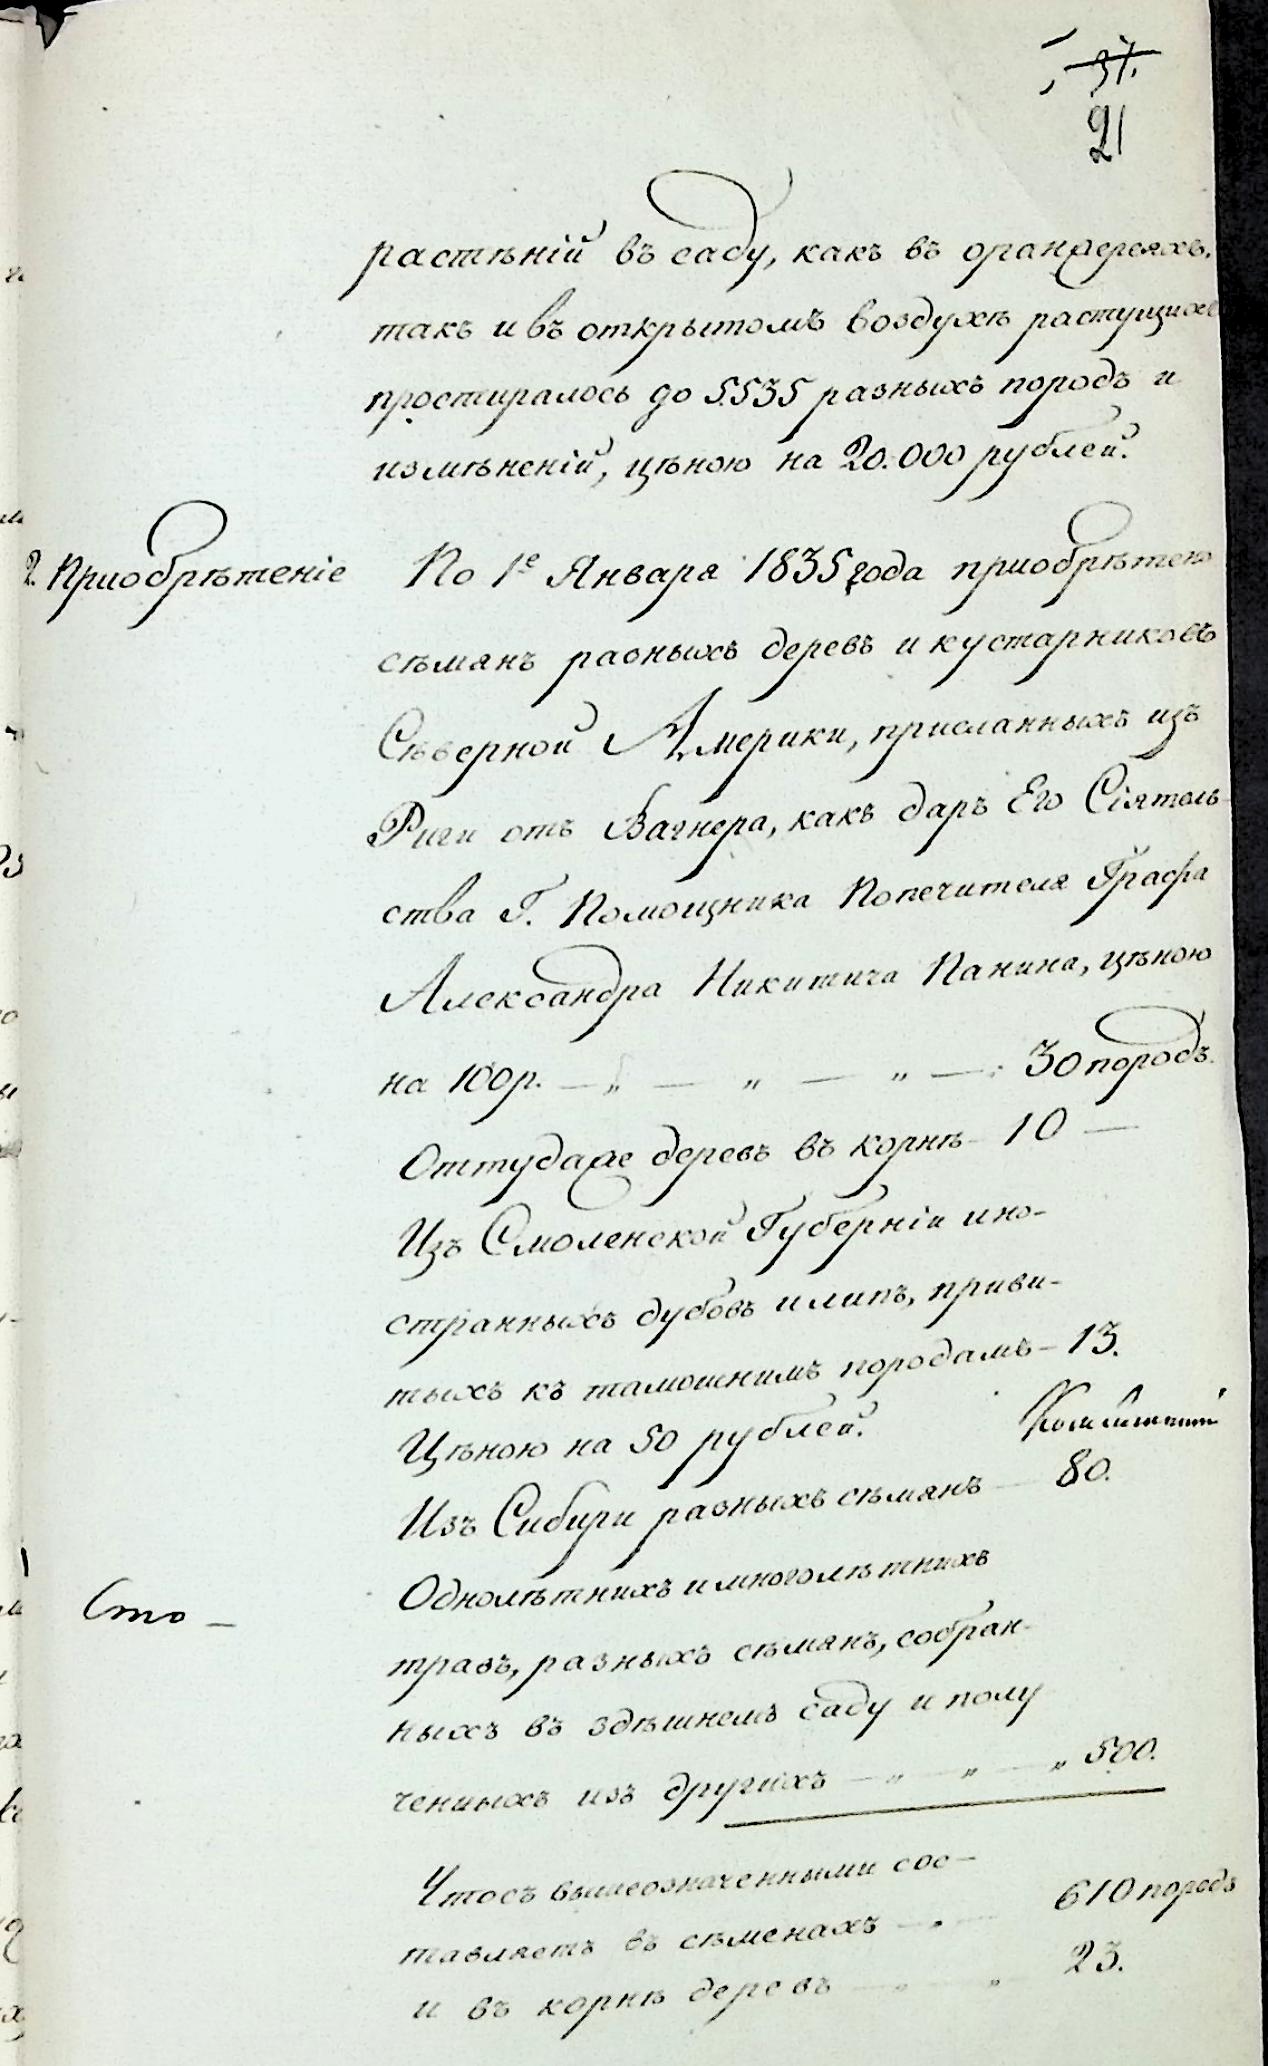 37.
21
растѣній въ саду, какъ въ оранжереяхъ,
такъ и въ открытомъ воздухѣ растущихъ
простиралось до 5.535 разныхъ породъ и
измѣненій, цѣною на 20.000 рублей.
2. Приобрѣтеніе По 1е Января 1835 года приобрѣтено
сѣмянъ разныхъ деревъ и кустарниковъ
Сѣверной Америки, присланныхъ изъ
Риги отъ Вагнера, какъ даръ Его Сіятель-
ства Г. Помощника Попечителя Графа
Александра Никитича Панина, цѣною
на 100 р. — „ — „ — „ — 30 породъ.
Оттудаже деревъ въ корнѣ – 10 —
Изъ Смоленской Губерніи ино-
странныхъ дубовъ и липъ, приви-
тыхъ къ тамошнимъ породамъ – 13.
Цѣною на 50 рублей.
Изъ Сибири разныхъ сѣмянъ — 80.
Однолѣтнихъ и многолѣтнихъ
Сто —
травъ, разныхъ сѣмянъ, собран-
ныхъ въ здѣшнемъ саду и полу-
ченныхъ изъ другихъ — „ — „ — „ 500.
Чтосъ вышеозначенными сос-
тавляетъ въ сѣменахъ — „ — 610 породъ
и въ корнѣ деревъ — „ — „ 23.